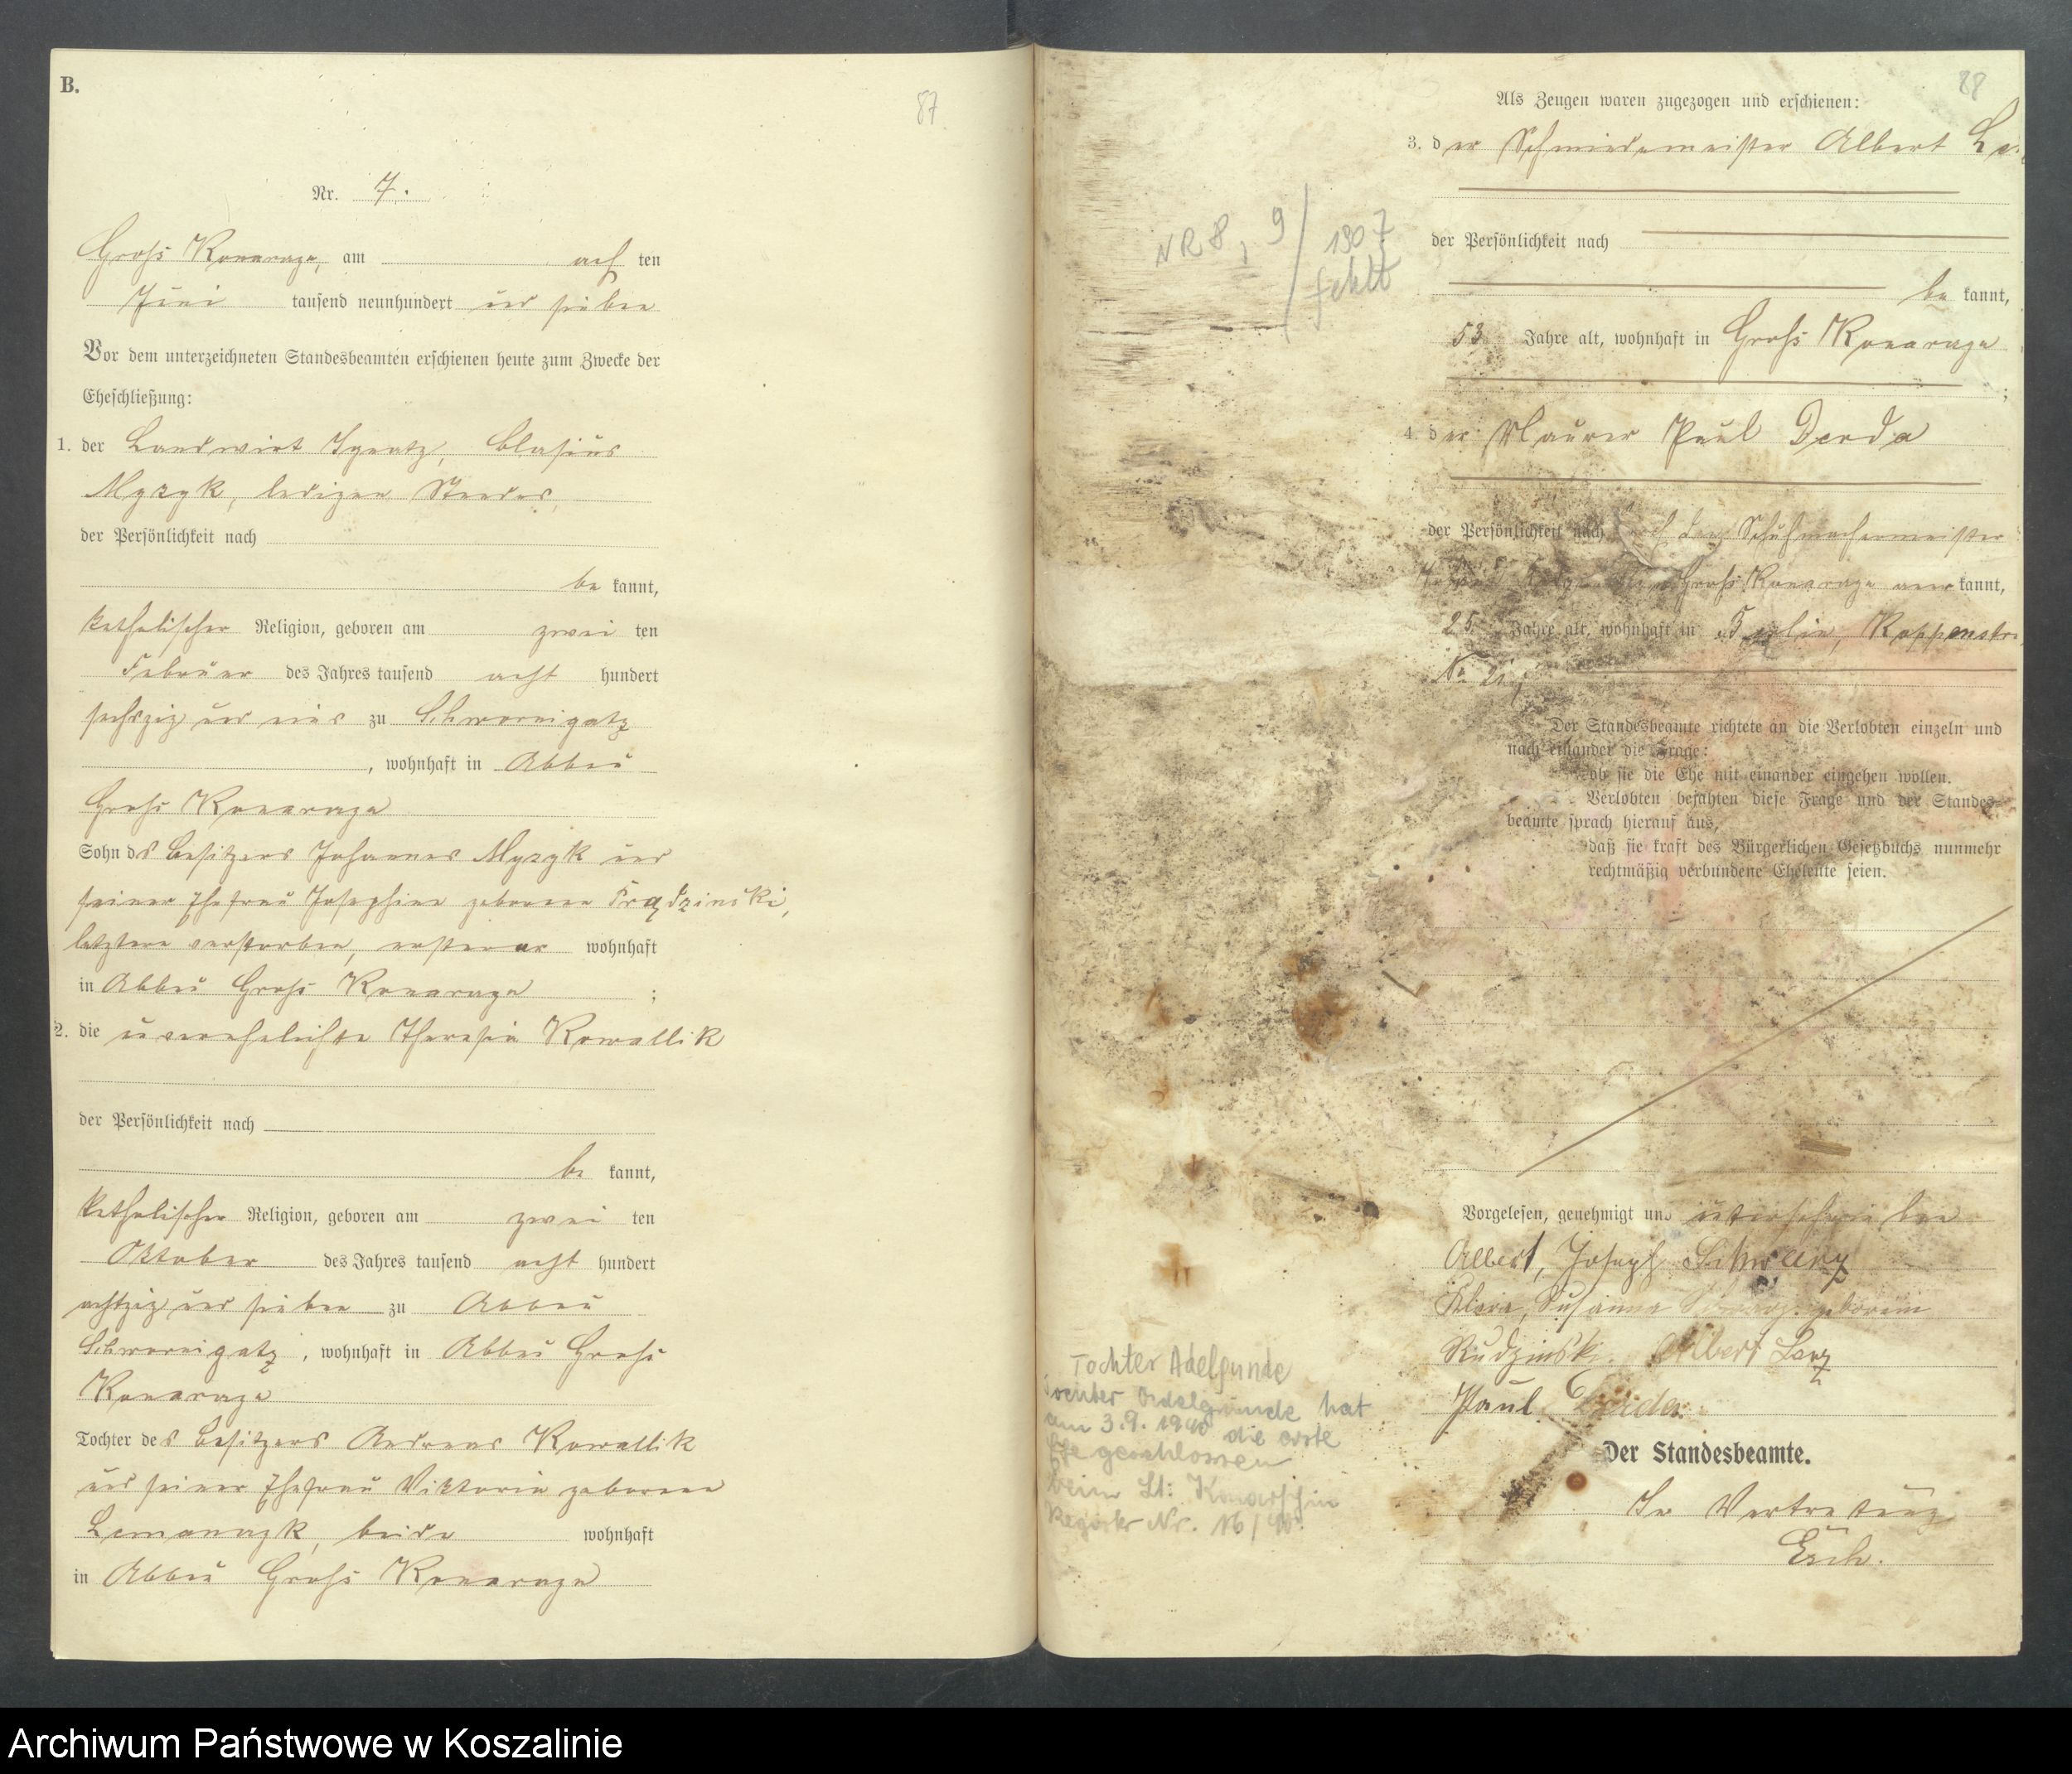 B.
87
Nr. 7.
Groß Konarczyn, am ach ten
Juni tausend neunhundert und sieben
Vor dem unterzeichneten Standesbeamten erschienen heute zum Zwecke der
Eheschließung:
1. der Landwirt Ignatz, Blasius
Myszk, ledigen Standes,
der Persönlichkeit nach
be kannt,
katholischer Religion, geboren am zwei ten
Februar des Jahres tausend acht hundert
sechszig und eins zu Schwornigatz
, wohnhaft in Abbau
Groß Konarczyn
Sohn des Besitzers Johannes Myszk und
seiner Ehefrau Josephine geborene
letztere verstorben, ersterer wohnhaft
in Abbau Groß Konarczyn ;
2. die unverehelichte Theresia Kowallik
der Persönlichkeit nach
be kannt,
katholischer Religion, geboren am zwei ten
Oktober des Jahres tausend acht hundert
achtzig und sieben zu Abbau
Schwornigatz , wohnhaft in Abbau Groß
Konarczyn
Tochter des Besitzers Andreas Kowallik
und seiner Ehefrau Viktoria geborene
Lemanczyk, beide wohnhaft
in Abbau Groß Konarczyn
88
Als Zeugen waren zugezogen und erschienen:
3. der Schmiedemeister Albert
der Persönlichkeit nach
be kannt,
53 Jahre alt, wohnhaft in Groß Konarczyn
;
4. der Maurer Paul Derda
der Persönlichkeit nach durch den Schuhmachermeister
Groß Konarczyn aner kannt,
25 Jahre alt, wohnhaft in Berlin, Koppenstr.
No
Der Standesbeamte richtete an die Verlobten einzeln und
nach einander die Frage:
ob sie die Ehe mit einander eingehen wollen.
Verlobten bejahten diese Frage und der Standes-
beamte sprach hierauf aus,
daß sie kraft des Bürgerlichen Gesetzbuchs nunmehr
rechtmäßig verbundene Eheleute seien.
Vorgelesen, genehmigt und unterschrieben
Albert, Joseph Schwarz
Klara, Susanna Schwarz geborene
Rudzinski. Albert Lanz
Paul Derda
Der Standesbeamte.
In Vertretung
Esch.
NR 8, 9/1907
fehlt
Tochter Adelgunde
Tochter Adelgunde hat
am 3.9.1940 die erste
Ehe geschlossen
beim St: Konarschin
Register Nr. 16/40
Archiwum Państwowe w Koszalinie